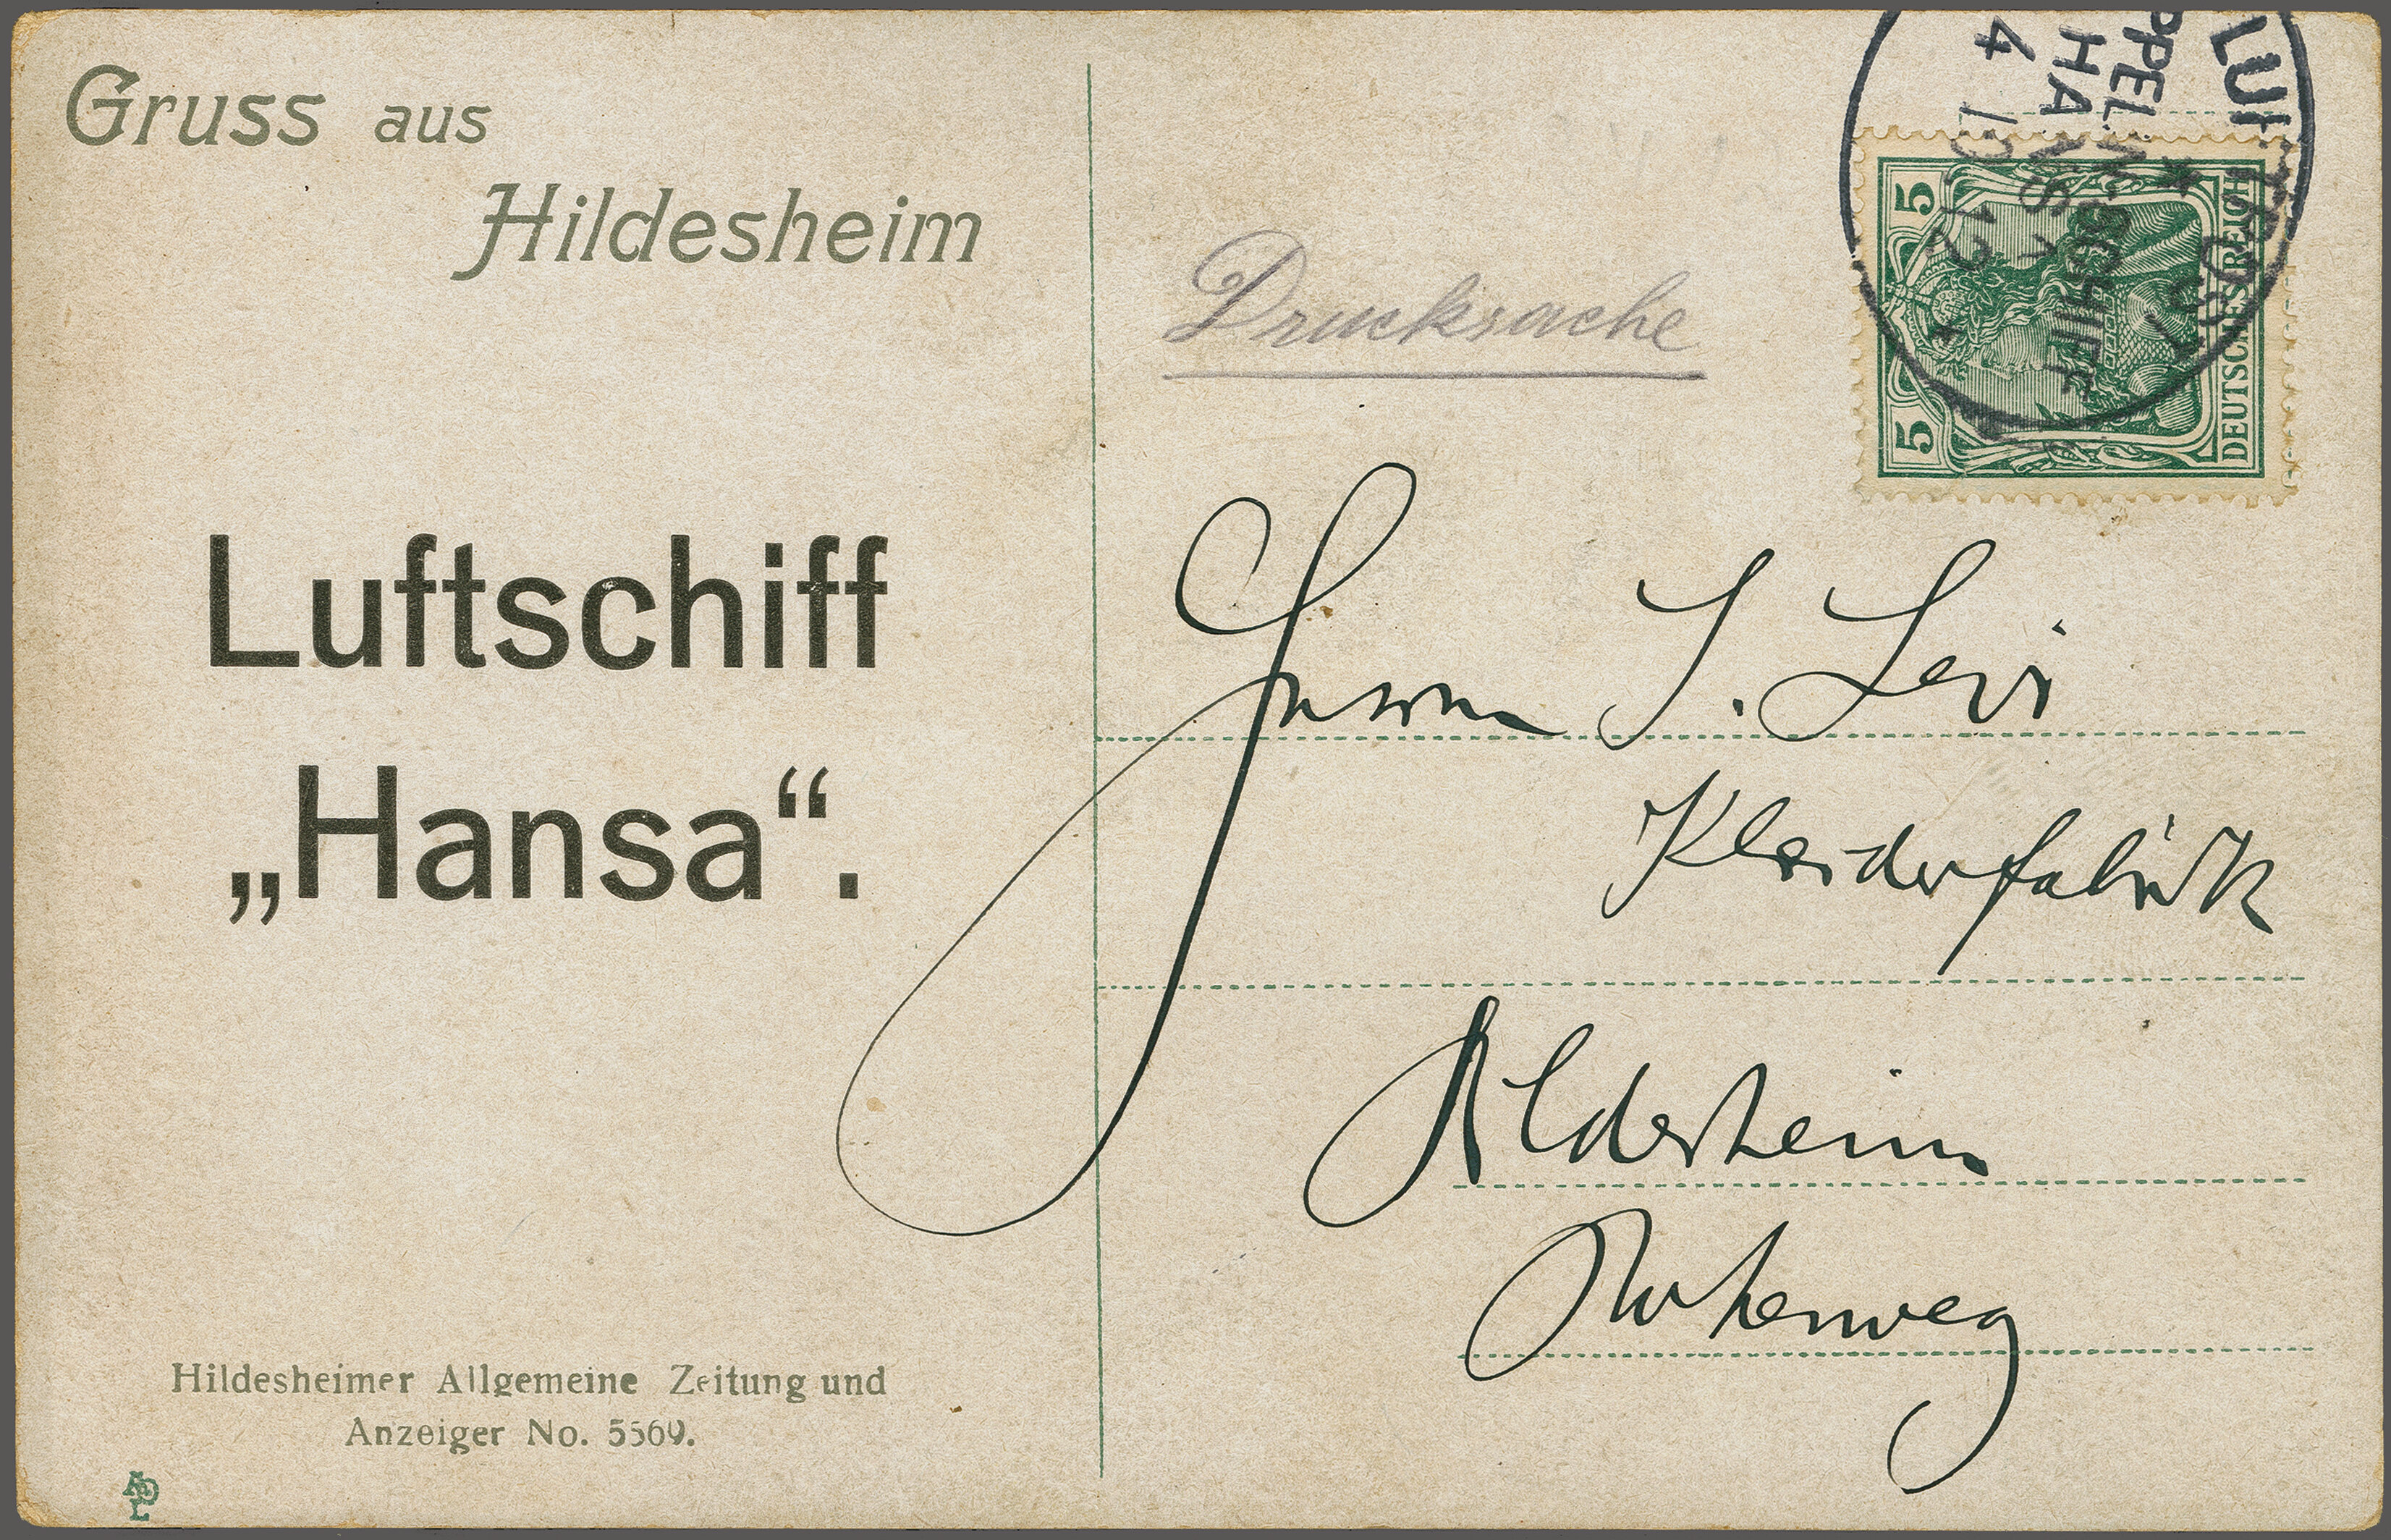 Gruss aus
Hildesheim
Luftschiff
„Hansa“.
Hildesheimer Allgemeine Zeitung und
Anzeiger No. 5569.
Drucksache
LUFTPOST
HANSA
4 10 12
5 5
DEUTSCHES REICH
S. Levi
Kleiderfabrik
Hildesheim